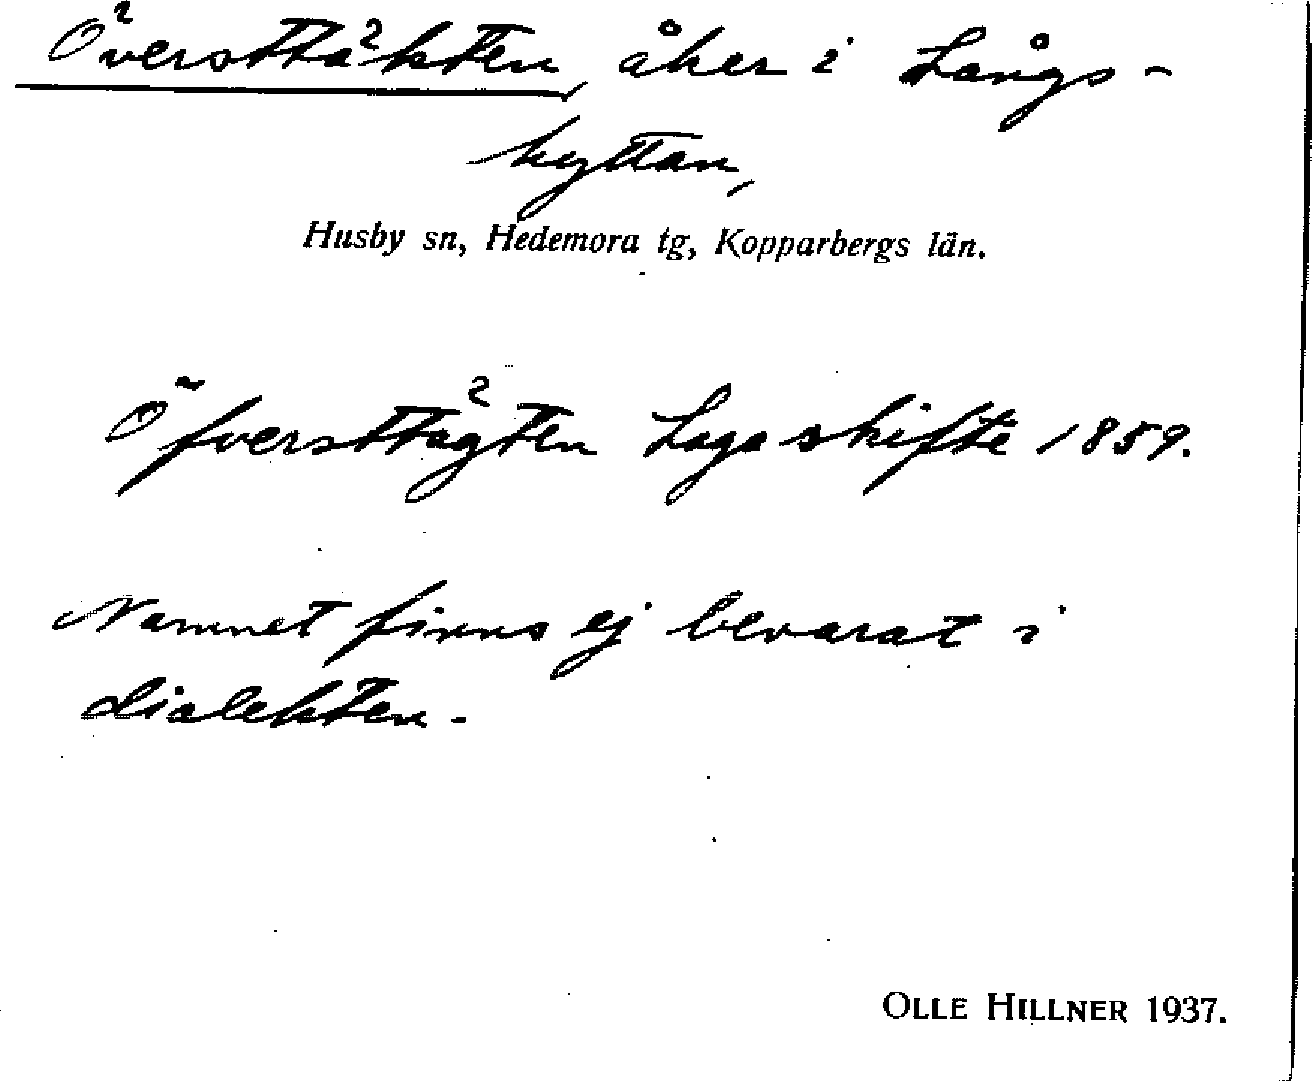 Översttäkten, åker i Långs-
hyttan,
Husby sn, Hedemora tg, Kopparbergs län.
Öfversttägten Laga skifte 1859.
Namnet finns ej bevarat i
dialekten.
OLLE HILLNER 1937.